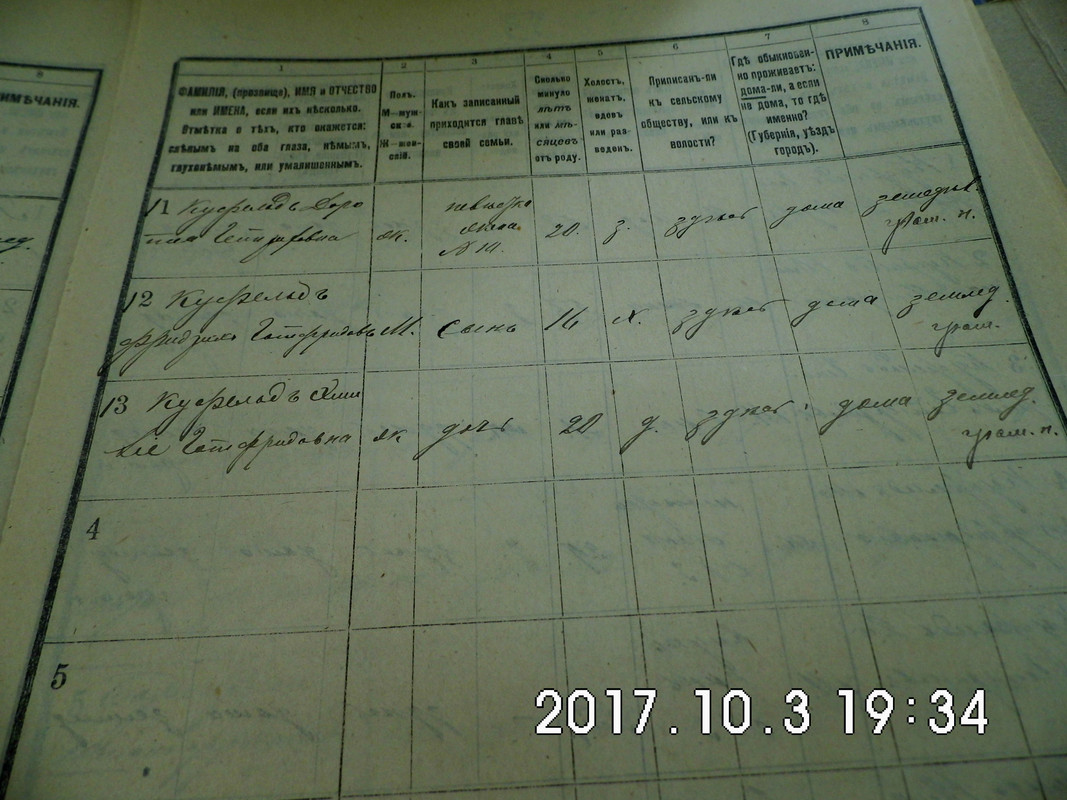 8
ИМѢЧАНІЯ.
1
2
3
4
5
6
7
8
ФАМИЛІЯ, (прозвище), ИМЯ и ОТЧЕСТВО
или ИМЕНА, если ихъ нѣсколько.
Отмѣтка о тѣхъ, кто окажется:
слѣпымъ на оба глаза, нѣмымъ,
глухонѣмымъ, или умалишеннымъ.
Полъ.
М—муж-
ской.
Ж—жен-
скій.
Какъ записанный
приходится главѣ
своей семьи.
Сколько
минуло
лѣтъ
или мѣ-
сяцевъ
отъ роду.
Холостъ,
женатъ,
вдовъ
или раз-
веденъ.
Приписанъ-ли
къ сельскому
обществу, или къ
волости?
Гдѣ обыкновен-
но проживаетъ:
дома-ли, а если
не дома, то гдѣ
именно?
(Губернія, уѣздъ
городъ).
ПРИМѢЧАНІЯ.
11 Кусфельдъ Доро
ж.
20.
з.
здѣсь
дома
грам. н.
12 Кусфельдъ
Фридрихъ Готфридовъ
М.
сынъ
16
х.
здѣсь
дома
землед.
грам.
13 Кусфельдъ
Готфридовна
ж
дочь
20
д.
здѣсь
дома
землед.
грам. н.
4
5
2017.10.3 19:34